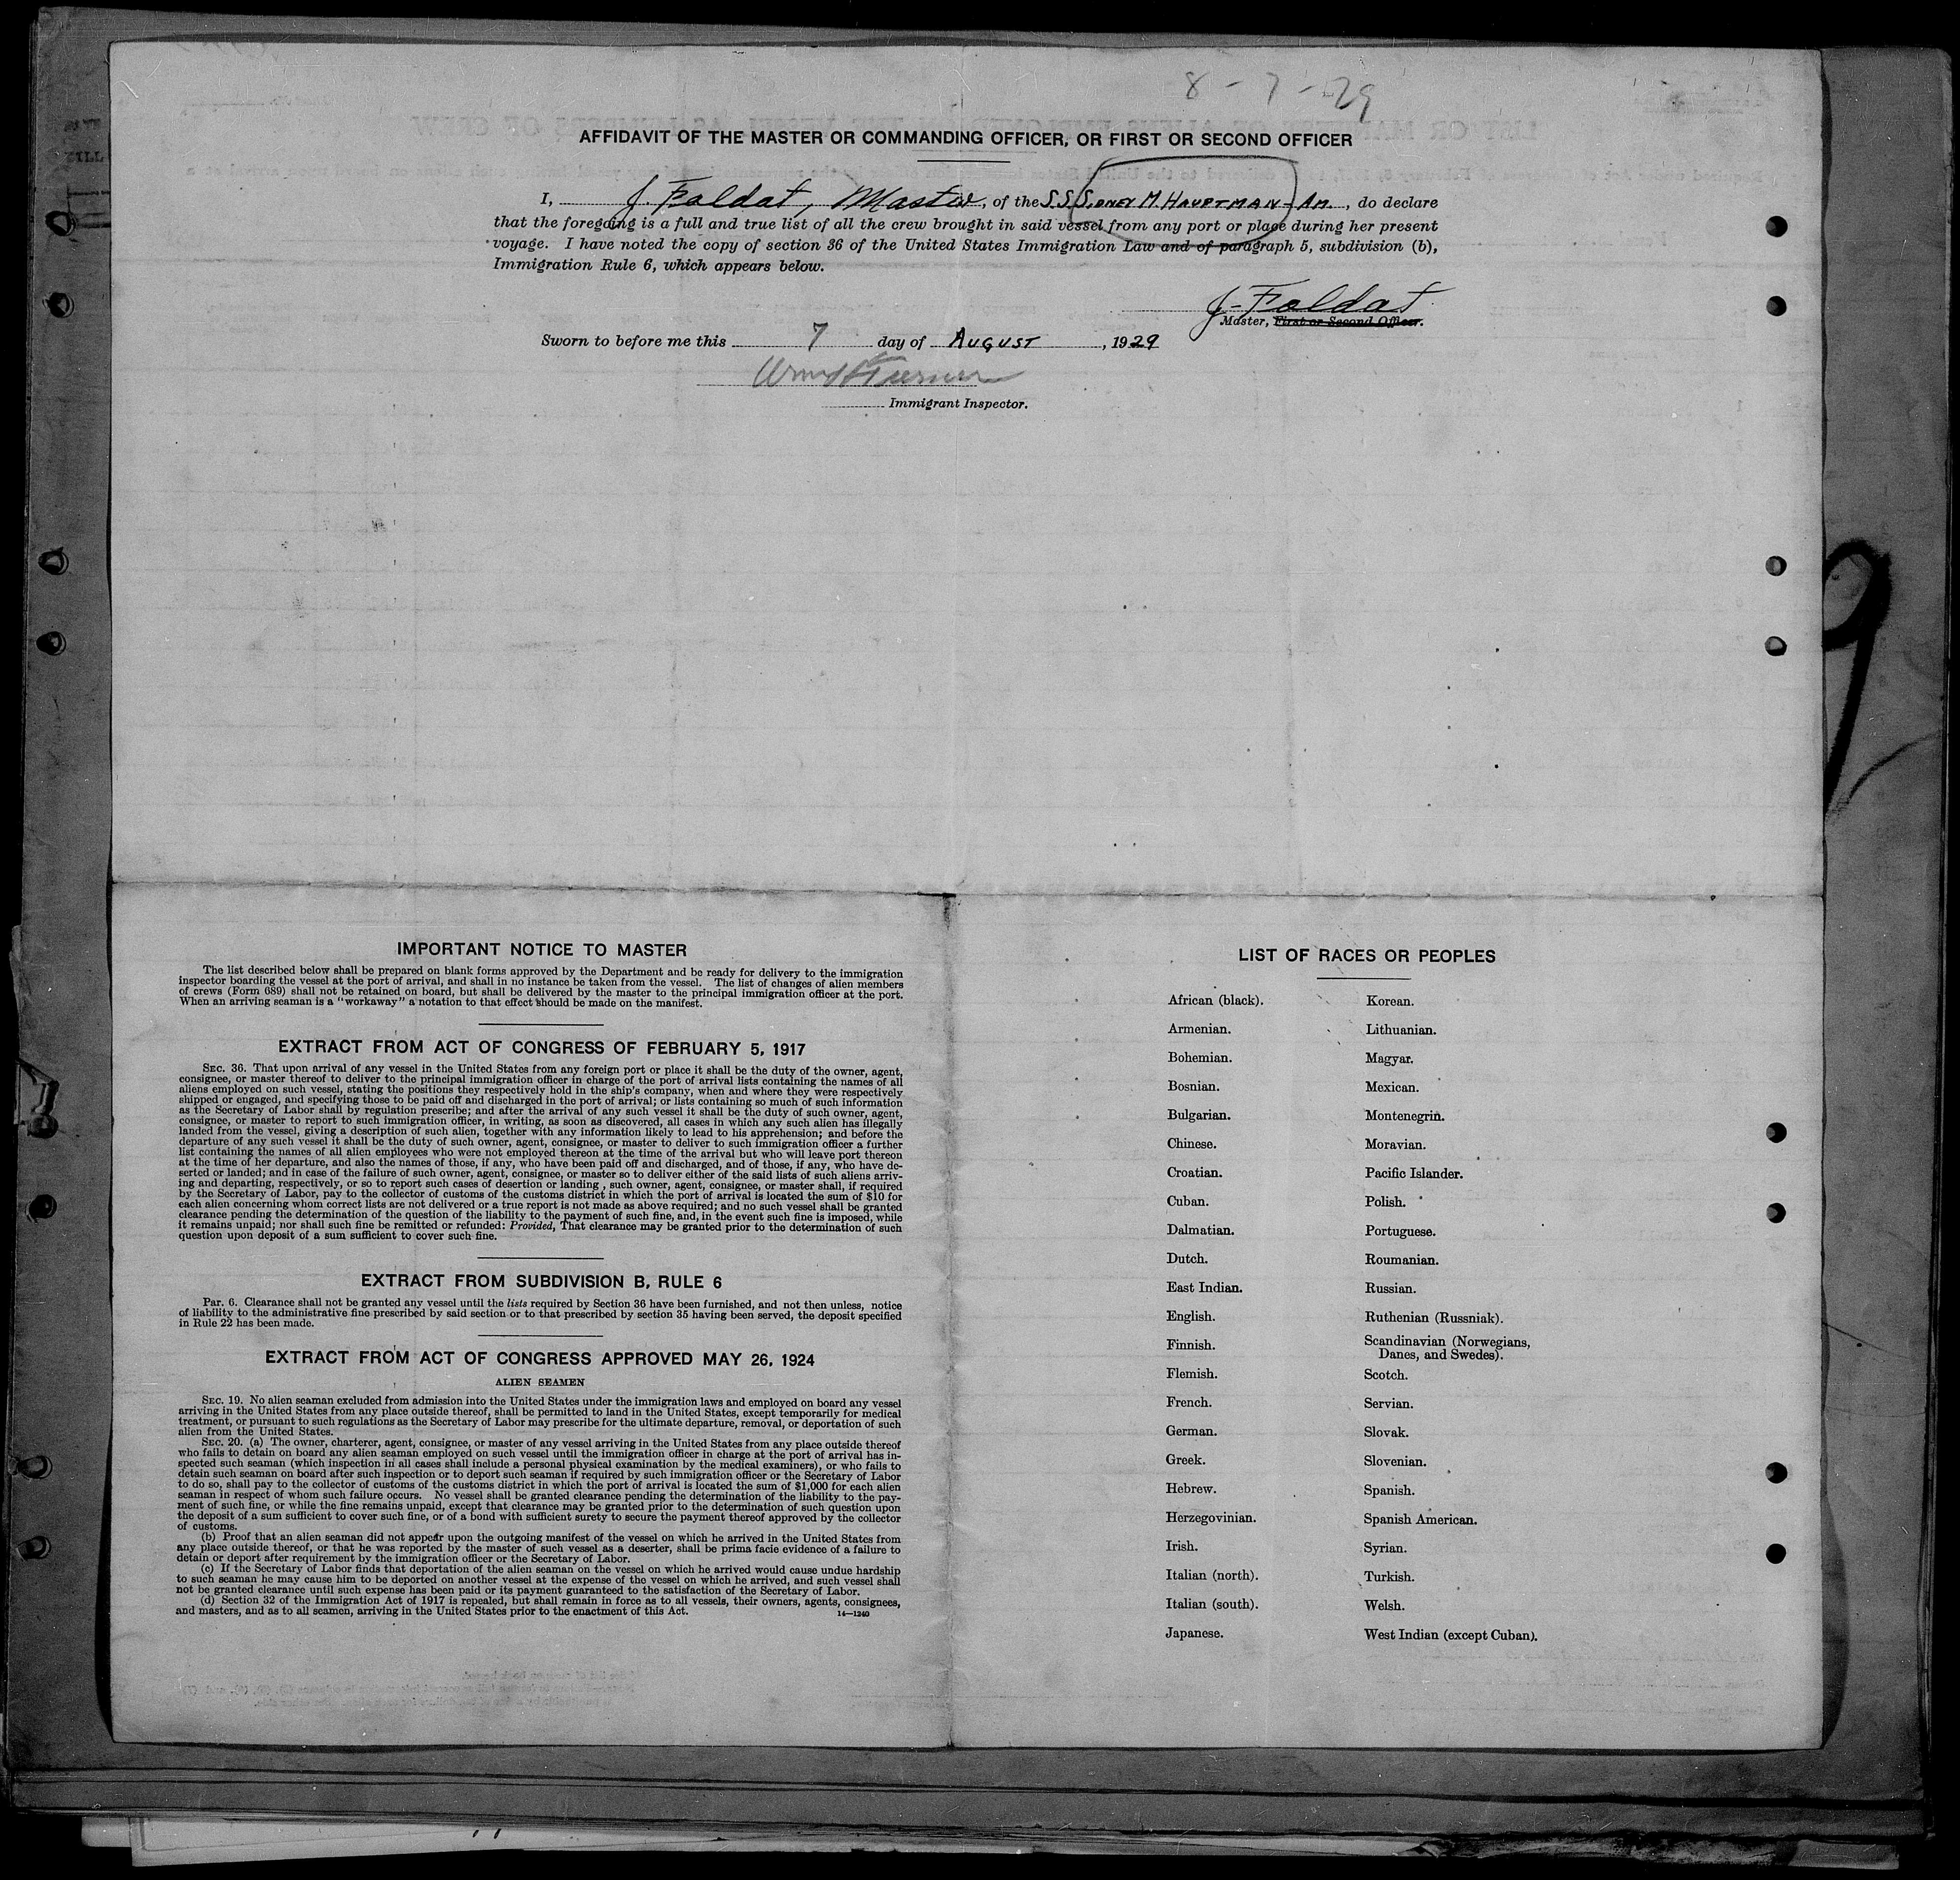 8-7-29
AFFIDAVIT OF THE MASTER OR COMMANDING OFFICER, OR FIRST OR SECOND OFFICER
I, J. Foldat, Master, of the S.S. SIDNEY M. HAUPTMAN - AM., do declare
that the foregoing is a full and true list of all the crew brought in said vessel from any port or place during her present
voyage. I have noted the copy of section 36 of the United States Immigration Law and of paragraph 5, subdivision (b),
Immigration Rule 6, which appears below.
J. Foldat
Master, First or Second Officer.
Sworn to before me this 7 day of AUGUST, 1929
Immigrant Inspector.
IMPORTANT NOTICE TO MASTER
The list described below shall be prepared on blank forms approved by the Department and be ready for delivery to the immigration
inspector boarding the vessel at the port of arrival, and shall in no instance be taken from the vessel. The list of changes of alien members
of crews (Form 689) shall not be retained on board, but shall be delivered by the master to the principal immigration officer at the port.
When an arriving seaman is a "workaway" a notation to that effect should be made on the manifest.
EXTRACT FROM ACT OF CONGRESS OF FEBRUARY 5, 1917
SEC. 36. That upon arrival of any vessel in the United States from any foreign port or place it shall be the duty of the owner, agent,
consignee, or master thereof to deliver to the principal immigration officer in charge of the port of arrival lists containing the names of all
aliens employed on such vessel, stating the positions they respectively hold in the ship's company, when and where they were respectively
shipped or engaged, and specifying those to be paid off and discharged in the port of arrival; or lists containing so much of such information
as the Secretary of Labor shall by regulation prescribe; and after the arrival of any such vessel it shall be the duty of such owner, agent,
consignee, or master to report to such immigration officer, in writing, as soon as discovered, all cases in which any such alien has illegally
landed from the vessel, giving a description of such alien, together with any information likely to lead to his apprehension; and before the
departure of any such vessel it shall be the duty of such owner, agent, consignee, or master to deliver to such immigration officer a further
list containing the names of all alien employees who were not employed thereon at the time of the arrival but who will leave port thereon
at the time of her departure, and also the names of those, if any, who have been paid off and discharged, and of those, if any, who have de-
serted or landed; and in case of the failure of such owner, agent, consignee, or master so to deliver either of the said lists of such aliens arriv-
ing and departing, respectively, or so to report such cases of desertion or landing, such owner, agent, consignee, or master shall, if required
by the Secretary of Labor, pay to the collector of customs of the customs district in which the port of arrival is located the sum of $10 for
each alien concerning whom correct lists are not delivered or a true report is not made as above required; and no such vessel shall be granted
clearance pending the determination of the question of the liability to the payment of such fine, and, in the event such fine is imposed, while
it remains unpaid; nor shall such fine be remitted or refunded: Provided, That clearance may be granted prior to the determination of such
question upon deposit of a sum sufficient to cover such fine.
EXTRACT FROM SUBDIVISION B, RULE 6
Par. 6. Clearance shall not be granted any vessel until the lists required by Section 36 have been furnished, and not then unless, notice
of liability to the administrative fine prescribed by said section or to that prescribed by section 35 having been served, the deposit specified
in Rule 22 has been made.
EXTRACT FROM ACT OF CONGRESS APPROVED MAY 26, 1924
ALIEN SEAMEN
SEC. 19. No alien seaman excluded from admission into the United States under the immigration laws and employed on board any vessel
arriving in the United States from any place outside thereof, shall be permitted to land in the United States, except temporarily for medical
treatment, or pursuant to such regulations as the Secretary of Labor may prescribe for the ultimate departure, removal, or deportation of such
alien from the United States.
SEC. 20. (a) The owner, charterer, agent, consignee, or master of any vessel arriving in the United States from any place outside thereof
who fails to detain on board any alien seaman employed on such vessel until the immigration officer in charge at the port of arrival has in-
spected such seaman (which inspection in all cases shall include a personal physical examination by the medical examiners), or who fails to
detain such seaman on board after such inspection or to deport such seaman if required by such immigration officer or the Secretary of Labor
to do so, shall pay to the collector of customs of the customs district in which the port of arrival is located the sum of $1,000 for each alien
seaman in respect of whom such failure occurs. No vessel shall be granted clearance pending the determination of the liability to the pay-
ment of such fine, or while the fine remains unpaid, except that clearance may be granted prior to the determination of such question upon
the deposit of a sum sufficient to cover such fine, or of a bond with sufficient surety to secure the payment thereof approved by the collector
of customs.
(b) Proof that an alien seaman did not appear upon the outgoing manifest of the vessel on which he arrived in the United States from
any place outside thereof, or that he was reported by the master of such vessel as a deserter, shall be prima facie evidence of a failure to
detain or deport after requirement by the immigration officer or the Secretary of Labor.
(c) If the Secretary of Labor finds that deportation of the alien seaman on the vessel on which he arrived would cause undue hardship
to such seaman he may cause him to be deported on another vessel at the expense of the vessel on which he arrived, and such vessel shall
not be granted clearance until such expense has been paid or its payment guaranteed to the satisfaction of the Secretary of Labor.
(d) Section 32 of the Immigration Act of 1917 is repealed, but shall remain in force as to all vessels, their owners, agents, consignees,
and masters, and as to all seamen, arriving in the United States prior to the enactment of this Act.
14—1240
LIST OF RACES OR PEOPLES
African (black).
Armenian.
Bohemian.
Bosnian.
Bulgarian.
Chinese.
Croatian.
Cuban.
Dalmatian.
Dutch.
East Indian.
English.
Finnish.
Flemish.
French.
German.
Greek.
Hebrew.
Herzegovinian.
Irish.
Italian (north).
Italian (south).
Japanese.
Korean.
Lithuanian.
Magyar.
Mexican.
Montenegrin.
Moravian.
Pacific Islander.
Polish.
Portuguese.
Roumanian.
Russian.
Ruthenian (Russniak).
Scandinavian (Norwegians,
Danes, and Swedes).
Scotch.
Servian.
Slovak.
Slovenian.
Spanish.
Spanish American.
Syrian.
Turkish.
Welsh.
West Indian (except Cuban).